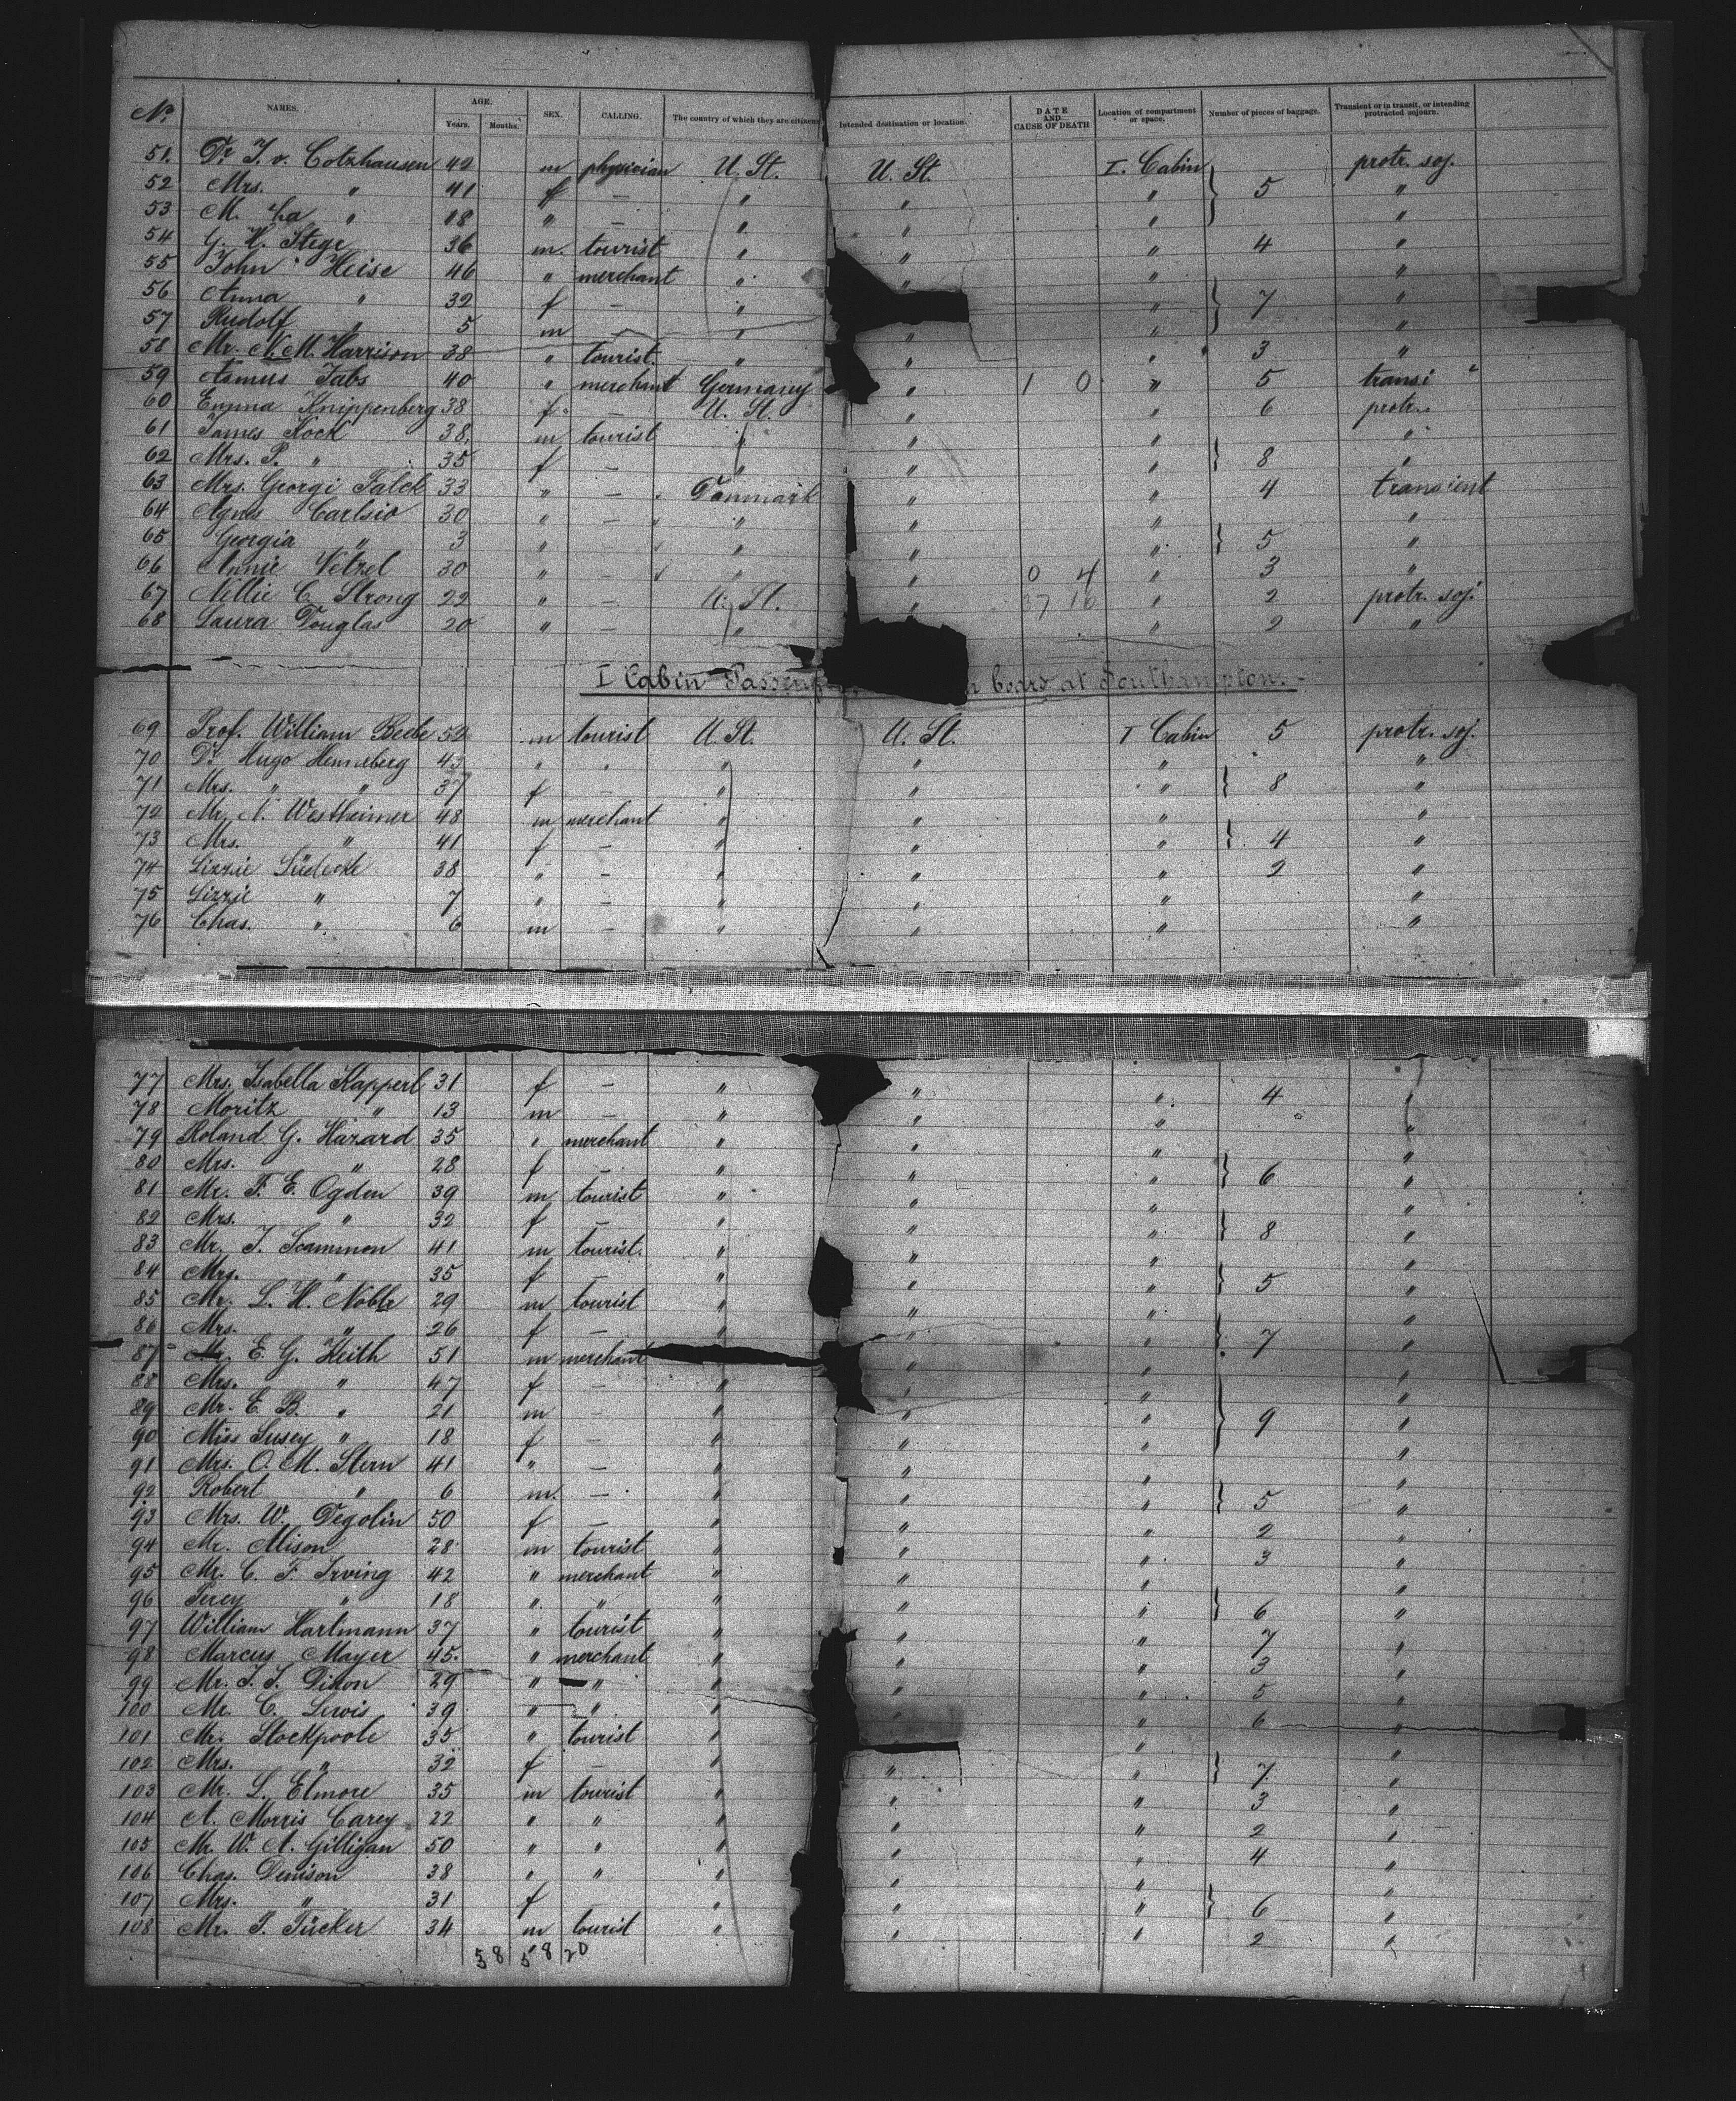 No. NAMES. AGE. Years. Months. SEX. CALLING. The country of which they are citizens. Intended destination or location. DATE AND CAUSE OF DEATH Location of compartment or space. Number of pieces of baggage. Transient or in transit, or intending protracted sojourn.
51. Dr. J. v. Cotzhausen 42 m physician U. St. U. St. I. Cabin protr. soj.
52 Mrs. " 41 f — " " " } 5 "
53 M. " 18 " — " " " "
54 G. H. Stege 36 m. tourist " " " 4 "
55 John Heise 46 " merchant " " " "
56 Anna " 32 f — " " } 7 "
57 Rudolf " 5 m — " " " "
58 Mr. N. M. Harrison 38 " tourist. " " " 3 "
59 Asmus Jabs 40 " merchant Germany " 1 0 " 5 transi
60 Emma Knippenberg 38 f. — U. St. " " 6 protr.
61 James Kock 38. m tourist " " " "
62 Mrs. P. " 35 f — " " " } 8 "
63 Mrs. Georgi Falck 33 " — Danmark " " 4 transient
64 Agnes Carlsio 30 " — " " " "
65 Georgia " 3 " " " " } 5 "
66 Annie Vetzel 30 " — " " 0 4 " 3 "
67 Nellie C. Strong 22 " — U. St. " 16 " 2 protr. soj.
68 Laura Douglas 20 " — " " 2 "
I Cabin Passen board at Southampton.
69 Prof. William Beebe 52 m tourist U. St. U. St. I Cabin 5 protr. soj.
70 Dr. Hugo Henneberg 43 " " " " " "
71 Mrs. " " 37 f — " " " } 8 "
72 Mr. N. Westheimer 48 m merchant " " " "
73 Mrs. " 41 f — " " " } 4 "
74 Lizzie Lüdecke 38 " — " " " 2 "
75 Lizzie " 7 " — " " " "
76 Chas. " 6 m — " " " "
77 Mrs. Isabella Kapperl 31 f — " " " 4 "
78 Moritz " 13 m — " " " "
79 Roland G. Hazard 35 " merchant " " " "
80 Mrs. " 28 f — " " " } 6 "
81 Mr. F. E. Ogden 39 m tourist " " " "
82 Mrs. " 32 f — " " " } 8 "
83 Mr. J. Scammon 41 m tourist. " " " "
84 Mrs. " 35 f — " " " } 5 "
85 Mr. L. H. Noble 29 m tourist " " " "
86 Mrs. " 26 f — " " " } 7 "
87 Mr. E. G. Keith 51 m merchant " " "
88 Mrs. " 47 f — " " " "
89 Mr. E. B. " 21 m — " " " } 9 "
90 Miss Susey " 18 f — " " " "
91 Mrs. O. M. Stern 41 " — " " " "
92 Robert " 6 m. — " " " } 5 "
93 Mrs. W. Degolin 50 f — " " " 2 "
94 Mr. Alison 28 m tourist " " " 3 "
95 Mr. C. F. Irving 42 " merchant " " " "
96 Percy " 18 " " " " " } 6 "
97 William Hartmann 37 " tourist " " " 7 "
98 Marcus Mayer 45. " merchant " " " 3 "
99 Mr. J. J. Dixon 29 " " " " " 5 "
100 Mr. C. Lewis 39 " " " " 6 "
101 Mr. Stockpoole 35 " tourist " " "
102 Mrs. " 32 f — " " " } 7. "
103 Mr. L. Elmore 35 m tourist " " " 3 "
104 A. Morris Carey 22 " " " " " 2 "
105 Mr. W. A. Gilligan 50 " " " " " 4 "
106 Chas. Denison 38 " " " " " "
107 Mrs. " 31 f — " " " } 6 "
108 Mr. P. Tücker 34 m tourist " " " 2 "
58 58 20